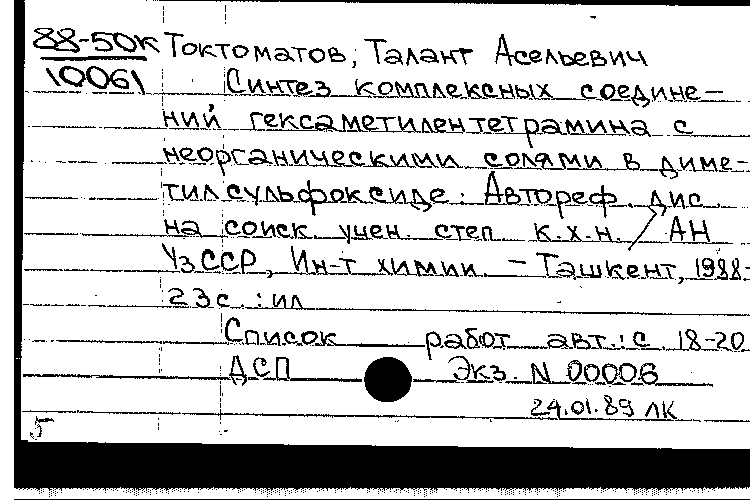 88-50к Токтоматов, Талант Асельевич
10061 Синтез комплексных соедине-
ний гексаметилентетрамина с
неорганическими солями в диме-
тилсульфоксиде: Автореф. дис.
на соиск. учен. степ. к.х.н. / АН
УзССР, Ин-т химии. - Ташкент, 1988.-
23с. : ил
Список работ авт.: с. 18-20
ДСП Экз. N 00006
24.01.89 ЛК
5